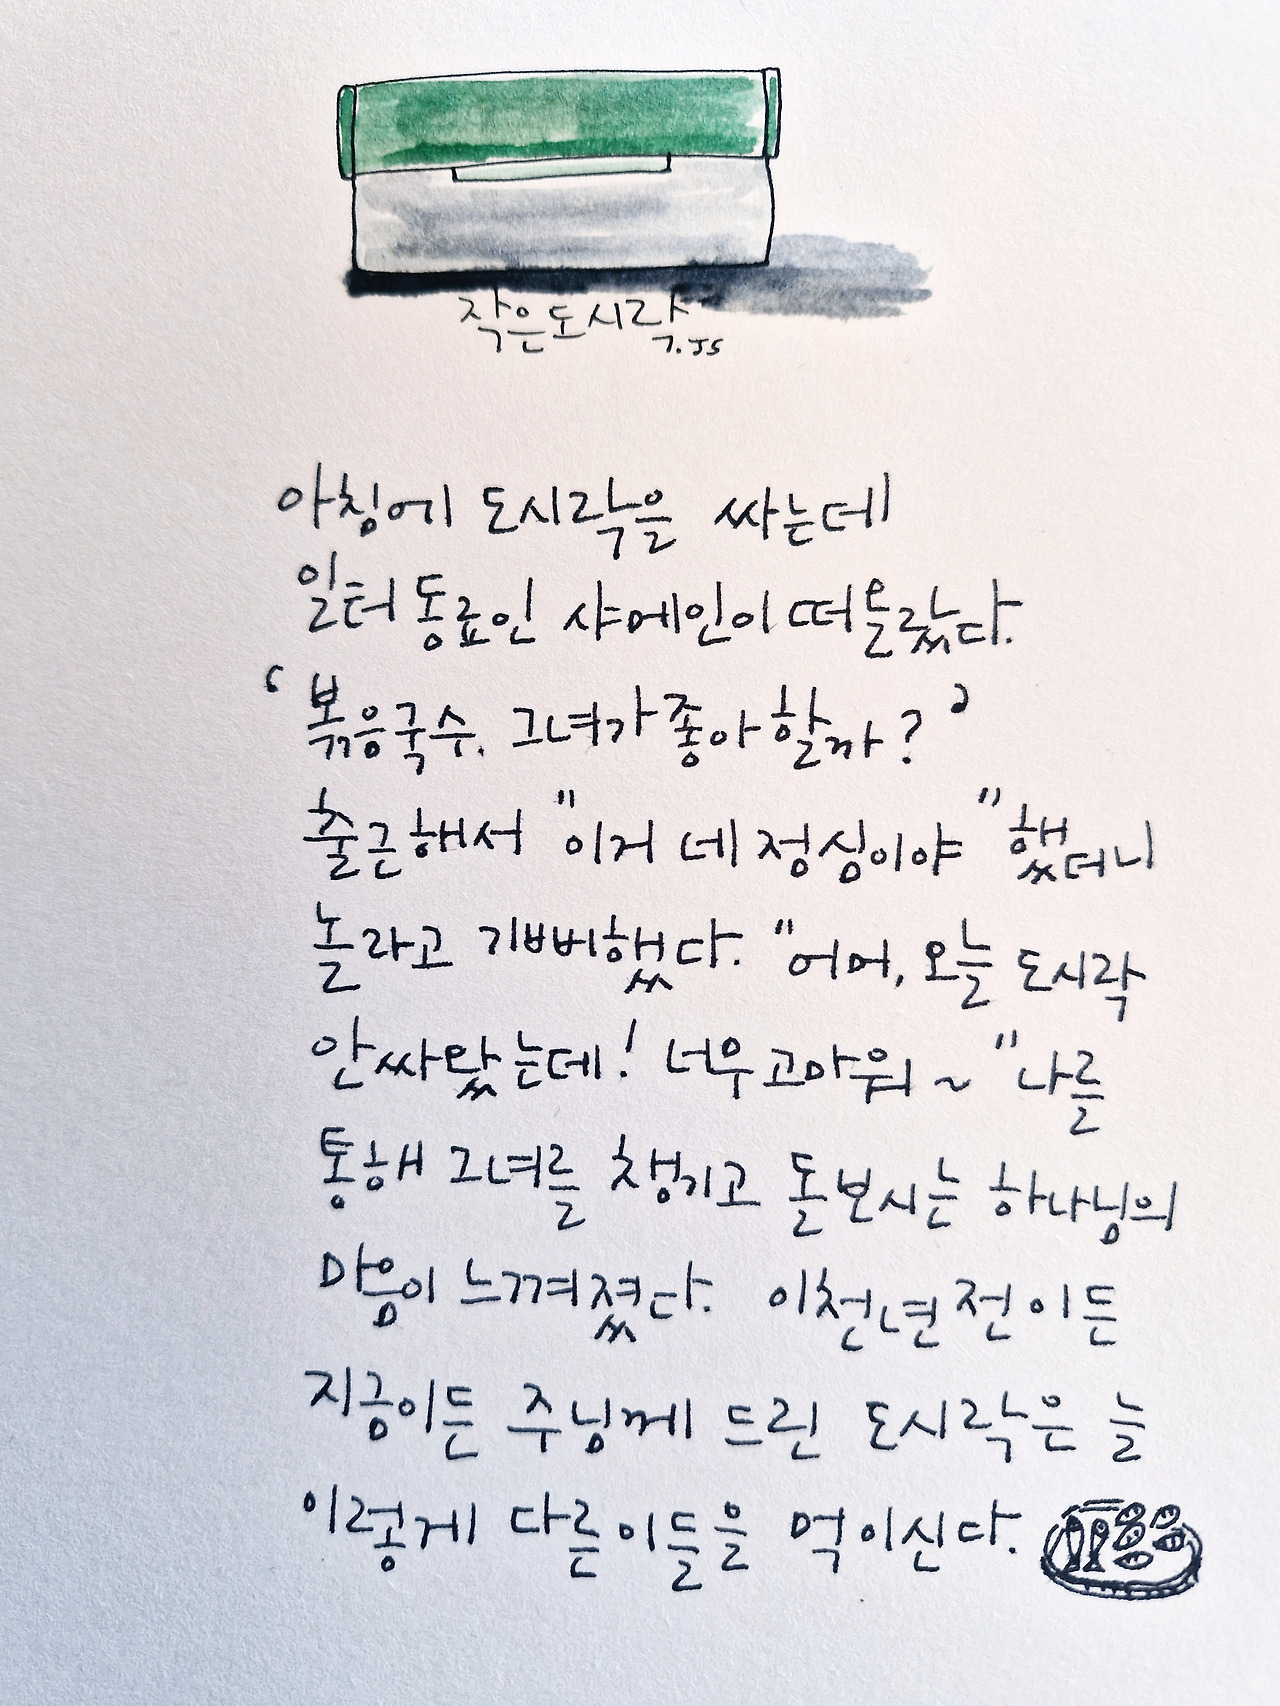 작은도시락
7.JS
아침에 도시락을 싸는데
일터 동료인 샤메인이 떠올랐다.
'볶음국수. 그녀가 좋아할까?'
출근해서 "이거 네 점심이야" 했더니
놀라고 기뻐해했다. "어머, 오늘 도시락
안싸왔는데! 너무 고마워~" 나를
통해 그녀를 챙기고 돌보시는 하나님의
마음이 느껴졌다. 이천년 전이든
지금이든 주님께 드린 도시락은 늘
이렇게 다른이들을 먹이신다.